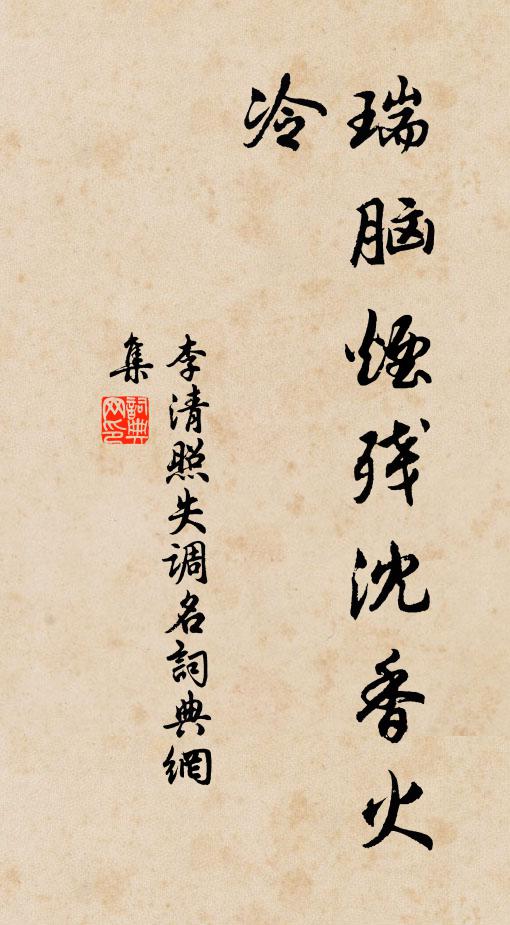 瑞脑烟残沈香火
冷
李清照失调名詞典網
集
詞典网印